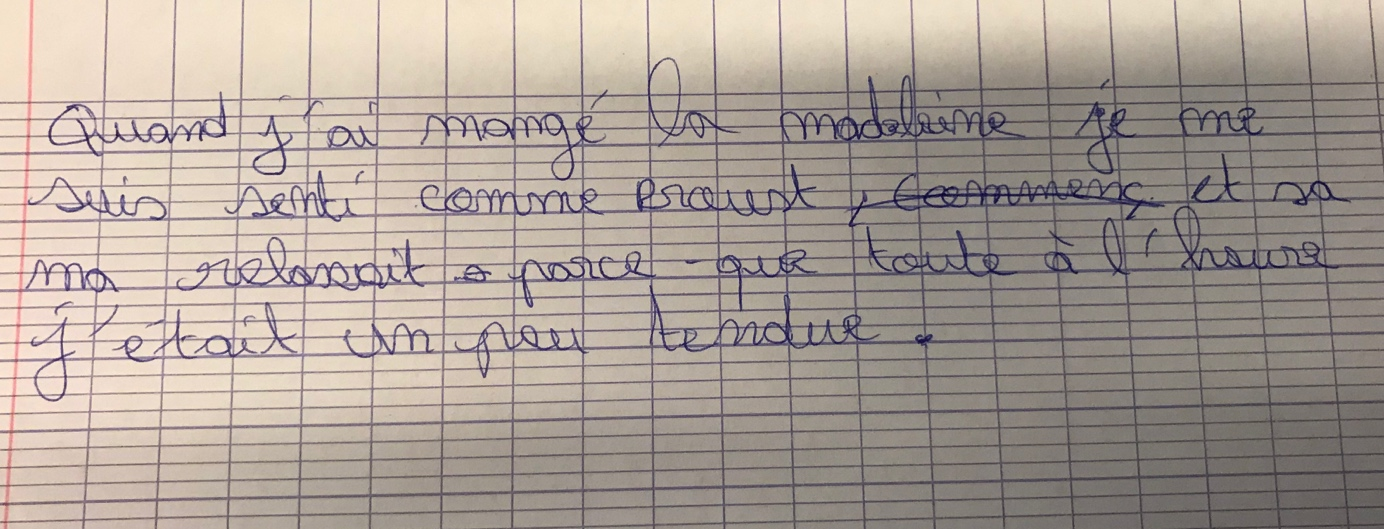 Quand j'ai mangé la madeleine je me
suis senti comme Proust, et sa
ma relaxait parce-que toute à l'heure
j'était un peu tendue.